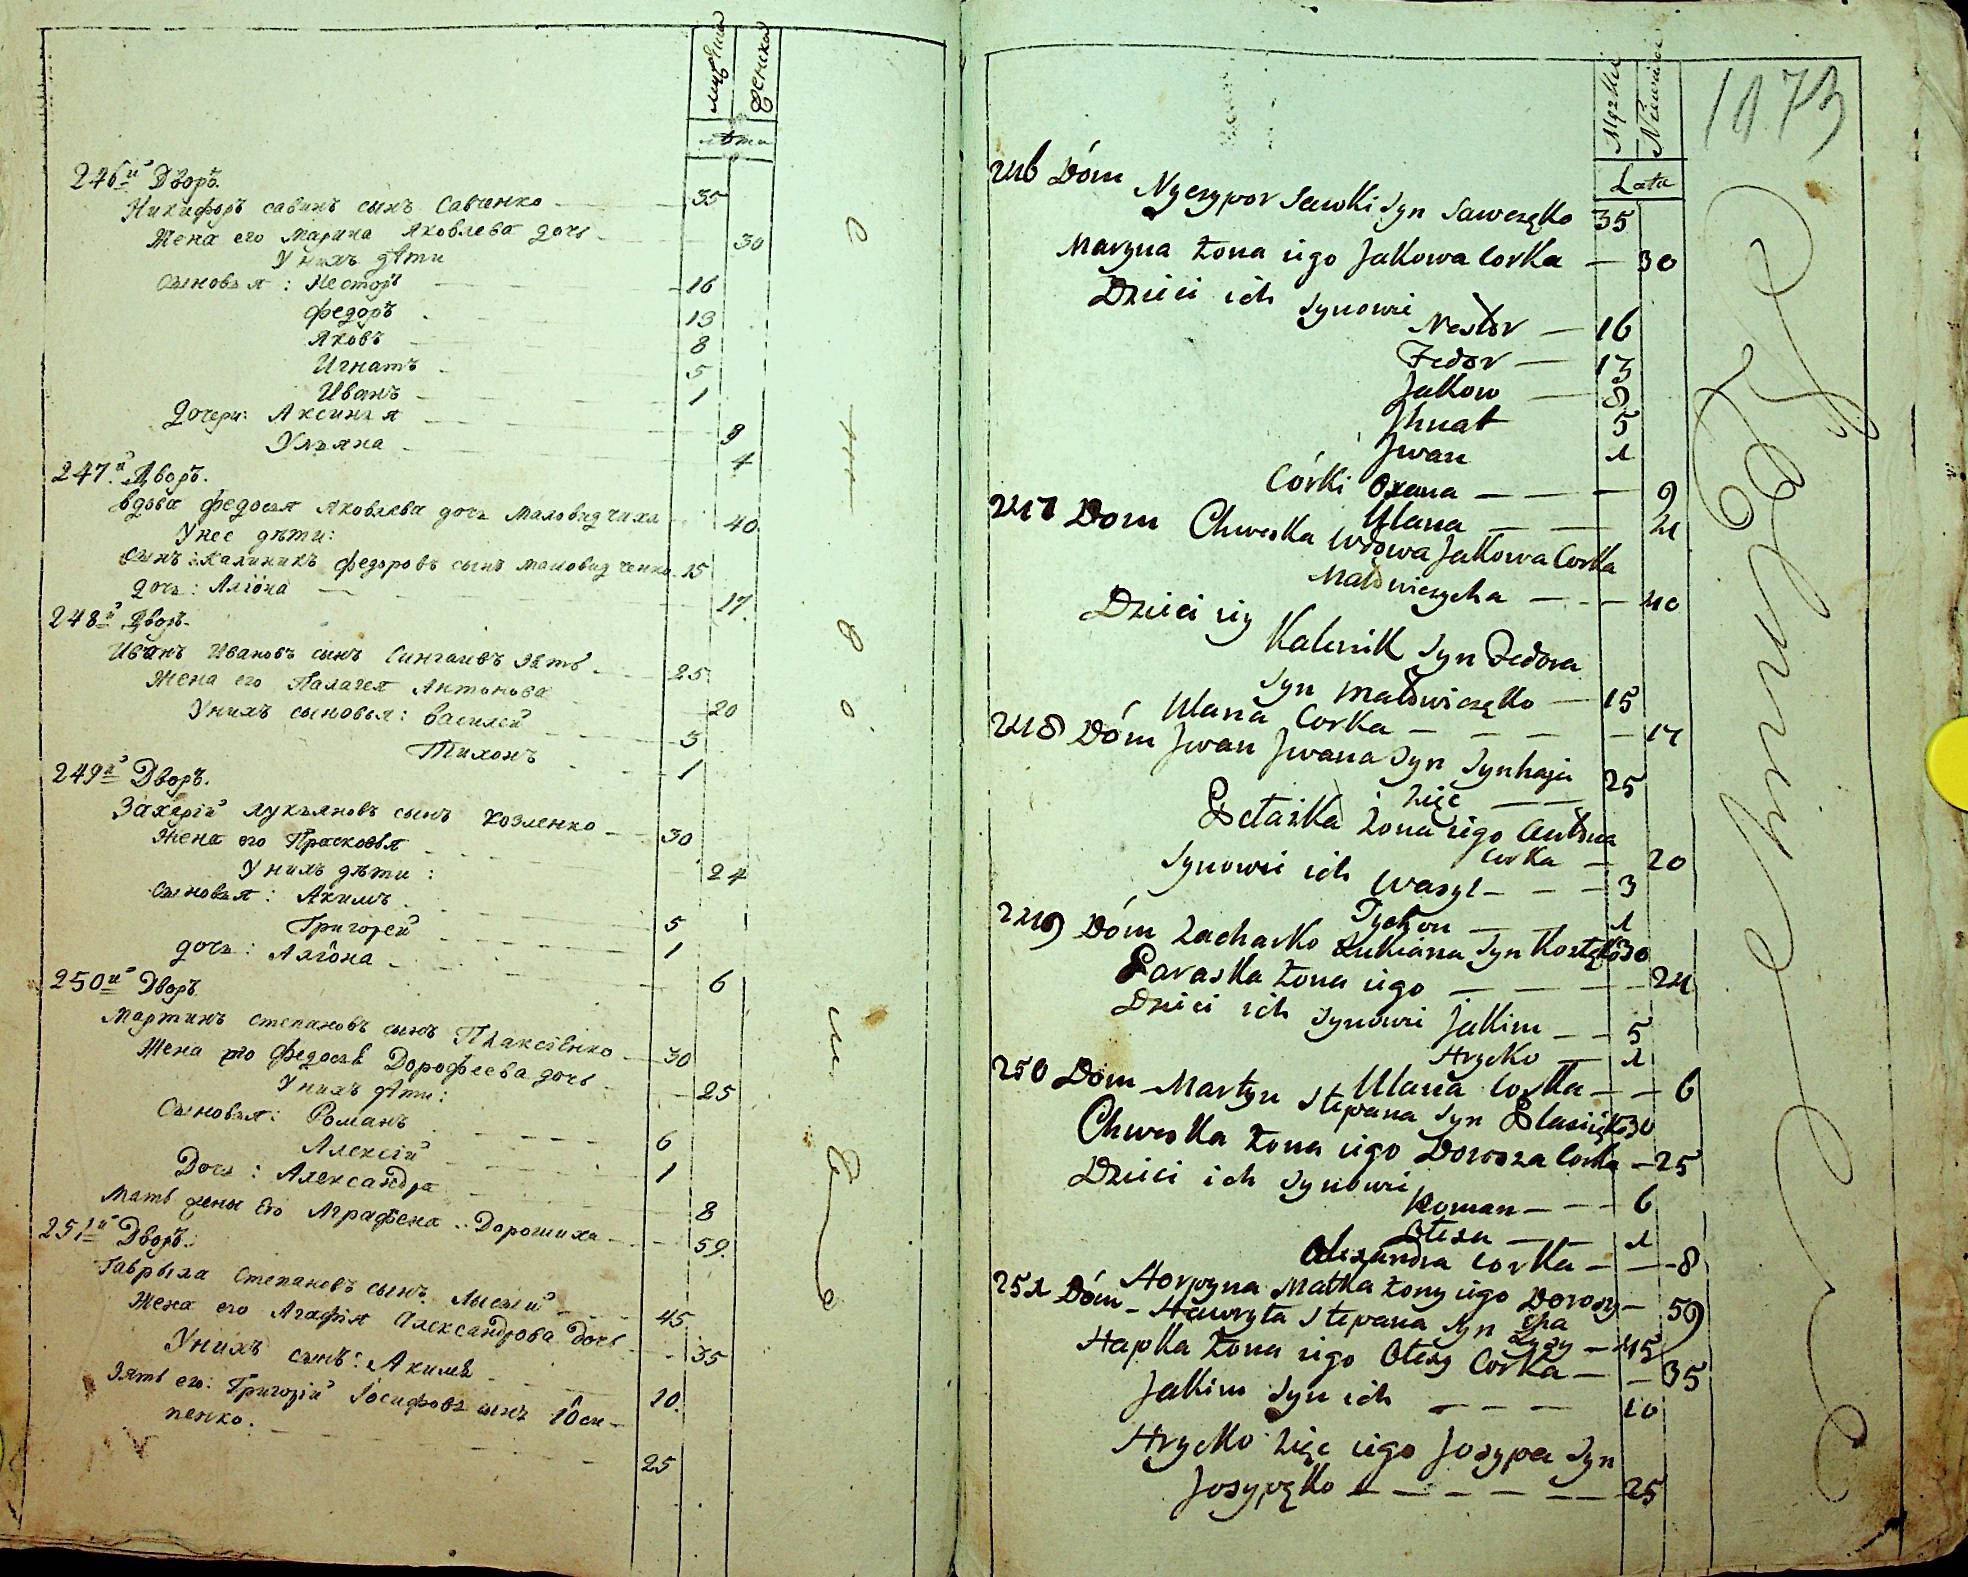 мужеска
женска
лѣта
246й Дворъ.
Никифоръ савинъ сынъ Савченко 35
Жена его Марина Яковлева дочь 30
У нихъ дѣти
Сыновья: Несторъ 16
Федоръ 13
Яковъ 8
Игнатъ 5
Иванъ 1
Дочери: Аксинья 9
Ульяна 4
247й Дворъ.
Вдова Федосья Яковлева дочь Маловидчиха 40
У нее дѣти:
Сынъ: Калиникъ Федоровъ сынъ Маловидченко 15
Дочь: Алiона 17
248й Дворъ.
Иванъ Ивановъ сынъ зять 25
Жена его Палагея Антонова 20
У нихъ сыновья: Василей 3
Тихонъ 1
249й Дворъ.
Захарiй Лукьяновъ сынъ Козленко 30
Жена его Прасковья 24
У нихъ дѣти:
Сыновья: Акимъ 5
Григорей 1
Дочь: Алiона 6
250й Дворъ
Мартинъ Степановъ сынъ 30
Жена его Федосья Дорофеева дочь 25
У нихъ дѣти:
Сыновья: Романъ 6
Алексiй 1
Дочь: Александра 8
Мать жены его Аграфена Дорошиха 59
251й Дворъ.
Гаврыла Степановъ сынъ Лысый 45
Жена его Агафiя Александрова дочь 35
У нихъ сынъ: Акимъ 10
Зять его: Григорiй Iосифовъ сынъ Юси-
пенко. 25
1173
Męzkie
Lata
246 Dóm Nyczypor Sawki Syn Sawczęko 35
Maryna Żona iego Jakowa Corka 30
Dzieci ich Synowie Nestor 16
Fedor 13
Jakow 8
Jhnat 5
Jwan 1
Córki Oxana 9
Ulana 4
247 Dom Chweska Wdowa Jakowa Corka
Małowiczycha 40
Dzieci iey Kalenik Syn Fedora
Syn Małowiczęko 15
Ulana Corka 17
248 Dóm Jwan Jwana Syn Synhaja
Zięc 25
Pełaszka Żona iego Antona
Corka 20
Synowie ich Wasyl 3
Tychon 1
249 Dóm Zacharko Łukiana Syn 30
Paraska Żona iego 24
Dzieci ich Synowie Jakim 5
Hrycko 1
Ulana Corka 6
250 Dom Martyn Stepana Syn 30
Chweska Żona iego Dorosza Corka 25
Dzieci ich Synowie
Roman 6
Ołexa 1
Olexandra Corka 8
Horpyna Matka Żony iego Doroszy-
cha 59
251 Dóm Hawryła Stepana Syn Łysy 45
Hapka Żona iego Ołexy Corka 35
Jakim Syn ich 10
Hrycko Zięc iego Josypa Syn
Josypęko 25